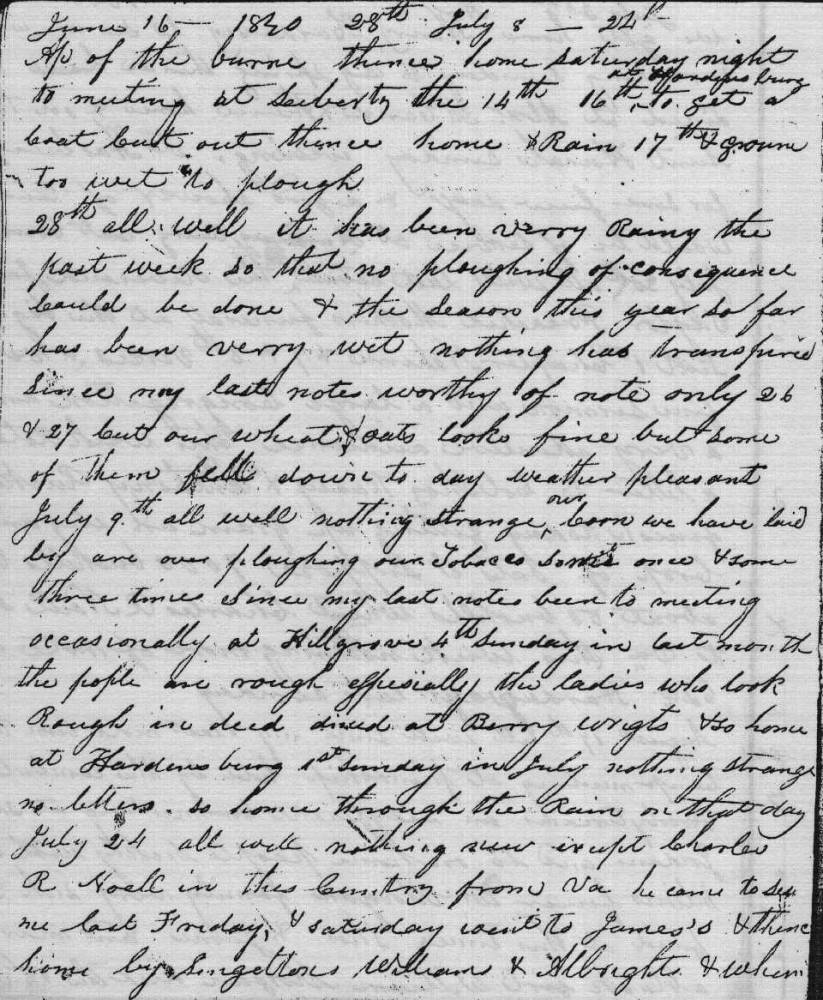 June 16 — 1840 28th July 8 — 24th
Ap of the burne thence home saturday night
at Hardens burg
to meeting at Liberty the 14th 16th to get a
Coat Cut out thence home & Rain 17th & groune
too wet to plough
28th all well it has been verry Rainy the
past week so that no ploughing of consequence
Could be done & the season this year so far
has been verry wet nothing has transpired
Since my last notes worthy of note only 26
& 27 Cut our wheat & oats looks fine but some
of them fell down to day weather pleasant
July 9th all well nothing strange, our Corn we have laid
by are over ploughing our Tobacco some once & some
three times Since my last notes been to meeting
occasionally at Hillgrove 4th Sunday in last month
the pople are rough espesially the ladies who look
Rough in deed dined at Berry wrigts & so home
at Hardensburg 1st Sunday in July nothing strange
no letters so home through the Rain on that day
July 24 all well nothing new except Charles
R Noell in this Cuntry from Va he came to see
me last Friday, & saturday went to James's & thence
home by Singletons Williams & Albrights & when